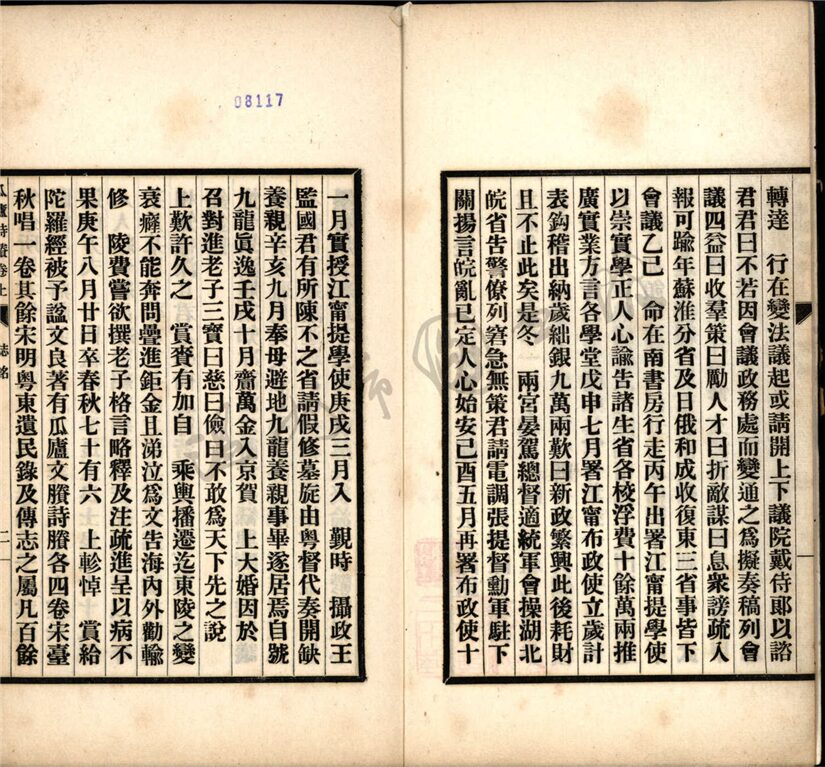 轉達　行在變法議起或請開上下議院戴侍郎以諮
君君曰不若因會議政務處而變通之爲擬奏稿列會
議四益曰收羣策曰勵人才曰折敵謀曰息衆謗疏入
報可踰年蘇淮分省及日俄和成收復東三省事皆下
會議乙巳　命在南書房行走丙午出署江甯提學使
以崇實學正人心諭告諸生省各校浮費十餘萬兩推
廣實業方言各學堂戊申七月署江甯布政使立歲計
表鈎稽出納歲絀銀九萬兩歎曰新政繁興此後耗財
且不止此矣是冬　兩宮晏駕總督適統軍會操湖北
皖省告警僚列窘急無策君請電調張提督勳軍駐下
關揚言皖亂已定人心始安己酉五月再署布政使十
一月實授江甯提學使庚戌三月入　覲時　攝政王
監國君有所陳不之省請假修墓旋由粤督代奏開缺
養親辛亥九月奉母避地九龍養親事畢遂居焉自號
九龍眞逸壬戌十月齋萬金入京賀　上大婚因於
召對進老子三寶曰慈曰儉曰不敢爲天下先之說
上歎許久之　賞賚有加自　乘輿播遷迄東陵之變
衰癃不能奔問疊進鉅金且涕泣爲文告海內外勸輸
修　陵費嘗欲撰老子格言略釋及注疏進呈以病不
果庚午八月廿日卒春秋七十有六　上軫悼　賞給
陀羅經被予諡文良著有瓜廬文賸詩賸各四卷宋臺
秋唱一卷其餘宋明粤東遺民錄及傳志之屬凡百餘
瓜廬詩賸卷上　志銘　二
08117